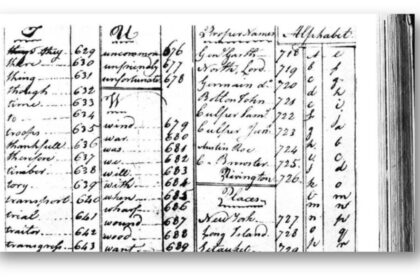 T
they 629
there 630
thing 631
though 632
time 633
to 634
troops 635
thankfull 636
therefore 637
timber 638
tory 639
transport 640
trial 641
traitor 642
transgress 643
U
uncommon 676
unfriendly 677
unfortunate 678
W
wind 679
war 680
was 681
we 682
will 683
with 684
when 685
wharf 686
wound 687
wood 688
want 689
Proper Names
Gen. Garth 718
North, Lord 719
Germain d. 720
Bolton John 721
Culper Saml. 722
Culper Junr. 723
Austin Roe 724
C. Brewster 725
Rivington 726
Places
New York 727
Long Island 728
Setauket 729
Alphabet
e
f
g
h
i
j
a
b
c
d
o
m
n
p
q